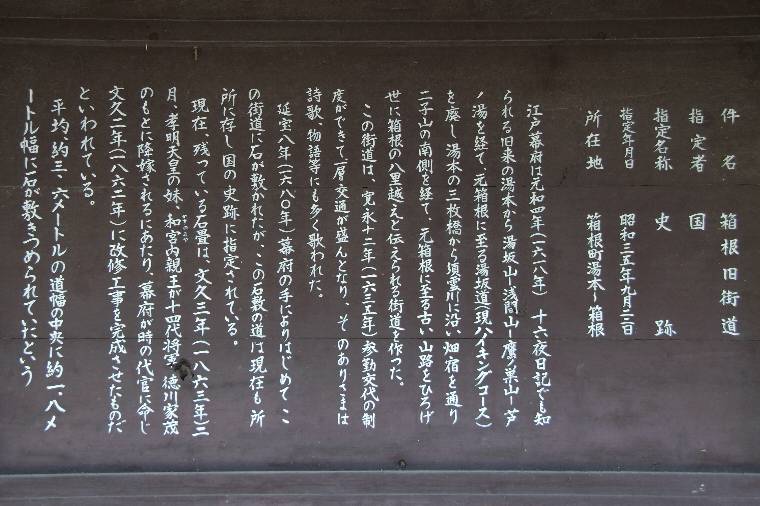 件名 箱根旧街道
指定者 国
指定名称 史跡
指定年月日 昭和三五年九月二日
所在地 箱根町湯本~箱根
江戸幕府は元和四年(一六一八年)十六夜日記でも知
られる旧来の湯本から湯坂山-浅間山-鷹ノ巣山-芦
ノ湯を経て、元箱根に至る湯坂道(現ハイキングコース)
を廃し、湯本の三枚橋から須雲川に沿い畑宿を通り
二子山の南側を経て、元箱根に至る古い山路をひろげ
世に箱根の八里越えと伝えられる街道を作った。
この街道は、寛永十二年(一六三五年)参勤交代の制
度ができて一層交通が盛んとなり、そのありさまは
詩歌、物語等にも多く歌われた。
延宝八年(一六八〇年)幕府の手によりはじめてこ
の街道に石が敷かれたが、この石敷の道は現在も所
所に存し国の史跡に指定されている。
現在、残っている石畳は、文久三年(一八六三年)三
月、孝明天皇の妹、和宮内親王が十四代将軍、徳川家茂
のもとに降嫁されるにあたり、幕府が時の代官に命じ
文久二年(一八六二年)に改修工事を完成させたものだ
といわれている。
平均、約三、六メートルの道幅の中央に約一、八メ
ートル幅に石が敷きつめられていたという